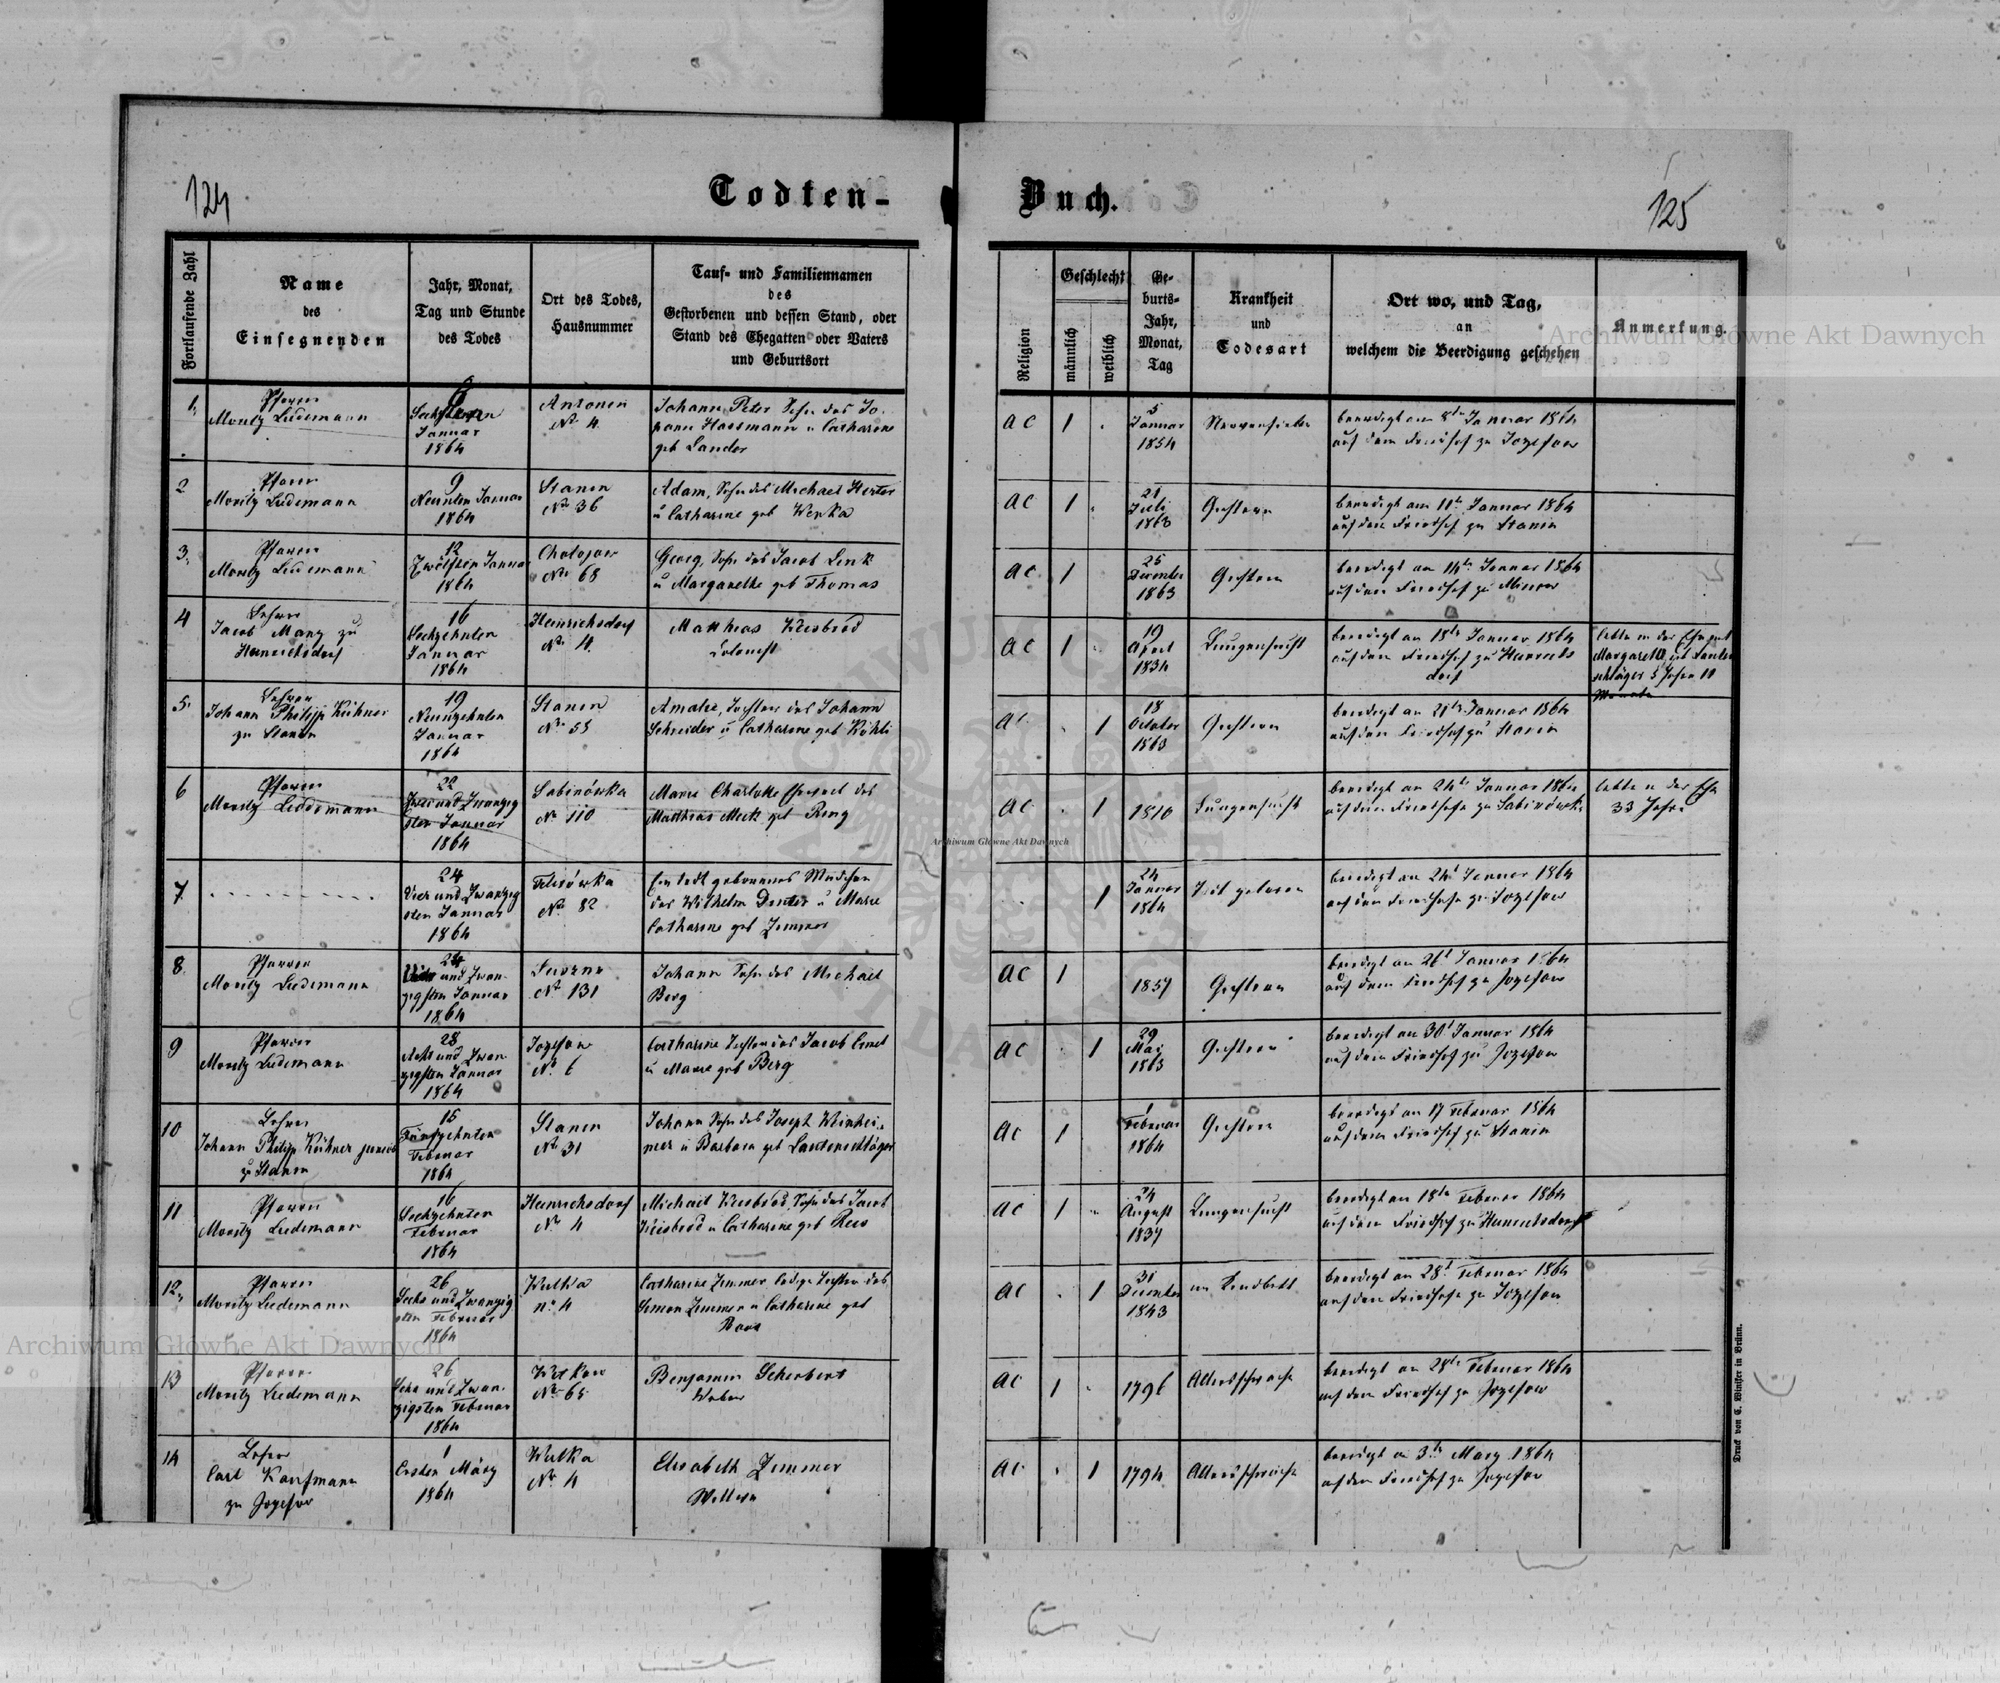 124
Todten-
Buch.
125
Fortlaufende Zahl
Name
des
Einsegnenden
Jahr, Monat,
Tag und Stunde
des Todes
Ort des Todes,
Hausnummer
Tauf- und Familiennamen
des
Gestorbenen und dessen Stand, oder
Stand des Ehegatten oder Vaters
und Geburtsort
Religion
Geschlecht
männlich
weiblich
Ge-
burts-
Jahr,
Monat,
Tag
Krankheit
und
Todesart
Ort wo, und Tag,
an
welchem die Beerdigung geschehen
Anmerkung.
1.
Pfarrer
Moritz Ludemann
6
Januar
1864
Antonin
No 4
Johann Peter Sohn des Jo-
hann Hassmann u Catharine
geb Lander
AC
1
5
Januar
1854
Nervenfieber
beerdigt am 8ten Januar 1864
auf dem Friedhof zu Jozefow
2
Pfarrer
Moritz Ludemann
9
Neunten Januar
1864
Stanin
No 36
Adam, Sohn des Michael
u Catharine geb Wepka
AC
1
21
Juli
1863
beerdigt am 11te Januar 1864
auf dem Friedhof zu Stanin
3.
Pfarrer
Moritz Ludemann
12
Zwölften Januar
1864
Chołojow
No 68
Georg, Sohn des Jacob Link
u Margarethe geb Thomas
AC
1
25
December
1863
beerdigt am 14te Januar 1864
auf dem Friedhof zu
4
Lehrer
Jacob Mang zu
Heinrichsdorf
16
Sechzehnten
Januar
1864
Heinrichsdorf
No 4
Matthias Weisbrod
Colonist
AC
1
19
April
1834
Lungensucht
beerdigt am 18te Januar 1864
auf dem Friedhof zu Heinrichs
dorf
lebte in der Ehe mit
Margareta geb Lauten
schläger 5 Jahre 11
Monate
5.
Lehrer
Johann Philipp Kühner
zu Stanin
19
Neunzehnten
Januar
1864
Stanin
No 55
Amalie, Tochter des Johann
Schneider u Catharine geb
AC
1
18
October
1863
beerdigt am 21te Januar 1864
auf dem Friedhof zu Stanin
6
Pfarrer
Moritz Ludemann
22
Zwei und Zwanzig
sten Januar
1864
Sabinówka
No 110
Marie Charlotte Ehefrau des
Matthias Meck geb Ring
AC
1
1810
Lungensucht
beerdigt am 24te Januar 1864
auf dem Friedhofe zu Sabinówka
lebte in der Ehe
33 Jahre
7
24
Vier und Zwanzig
sten Januar
1864
No 82
Ein todt gebornes Mädchen
des Wilhelm u Marie
Catharine geb Zimmer
1
24
Januar
1864
Todt geboren
beerdigt am 24t Januar 1864
auf dem Friedhofe zu Jozefow
8
Pfarrer
Moritz Ludemann
24
Vier und Zwan-
zigsten Januar
1864
No 131
Johann Sohn des Michael
Berg
AC
1
1857
beerdigt am 26t Januar 1864
auf dem Friedhof zu Jozefow
9
Pfarrer
Moritz Ludemann
28
Acht und Zwan-
zigsten Januar
1864
Jozefow
No 6
Catharine Tochter des Jacob
u Marie geb Berg
AC
1
29
Mai
1863
beerdigt am 30t Januar 1864
auf dem Friedhof zu Jozefow
10
Lehrer
Johann Philipp Kühner junior
zu Stanin
15
Fünfzehnten
Februar
1864
Stanin
No 31
Johann Sohn des Joseph Weinhei-
mer u Barbara geb Lautenschläger
AC
1
1
Februar
1864
beerdigt am 17 Februar 1864
auf dem Friedhof zu Stanin
11
Pfarrer
Moritz Ludemann
16
Sechzehnten
Februar
1864
Heinrichsdorf
No 4
Michael Weisbrod, Sohn des Jacob
Weisbrod u Catharine geb
AC
1
24
August
1837
Lungensucht
beerdigt am 18te Februar 1864
auf dem Friedhof zu Heinrichsdorf
12.
Pfarrer
Moritz Ludemann
26
Sechs und Zwanzig
sten Februar
1864
Wulka
No 4
Catharine Zimmer ledige Tochter des
Simon Zimmer u Catharine geb
AC
1
31
December
1843
im Kindbett
beerdigt am 28t Februar 1864
auf dem Friedhofe zu Jozefow
13
Pfarrer
Moritz Ludemann
26
Sechs und Zwan-
zigsten Februar
1864
Witkow
No 65
Benjamin Scherbert
Weber
AC
1
1796
Altersschwäche
beerdigt am 28te Februar 1864
auf dem Friedhof zu Jozefow
14
Lehrer
Carl Kaufmann
zu Jozefow
1
Ersten März
1864
Wulka
No 4
Elisabeth Zimmer
Wittwe
AC
1
1794
Altersschwäche
beerdigt am 3te März 1864
auf dem Friedhof zu Jozefow
Druck von C. Winiker in Brünn.
Archiwum Główne Akt Dawnych
Archiwum Główne Akt Dawnych
Archiwum Główne Akt Dawnych